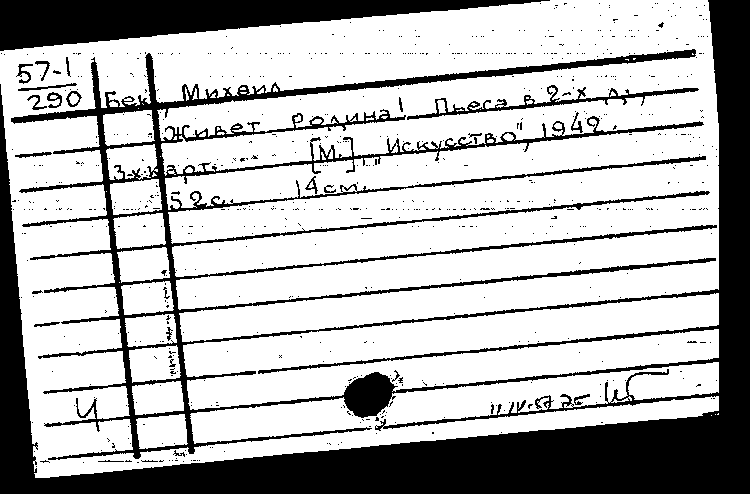 57-1
290
Бек, Михаил
Живет Родина! Пьеса в 2-х д.,
3-х карт. ... [М.], „Искусство", 1942.
52 с. 14 см.
Ч
11 IV-57